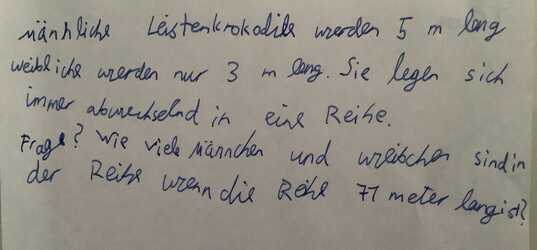 männliche Leistenkrokodile werden 5 m lang
weibliche werden nur 3 m lang. Sie legen sich
immer abwechselnd in eine Reihe.
Frage? Wie viele Männchen und weibchen sind in
der Reihe wenn die Reihe 77 meter lang ist?